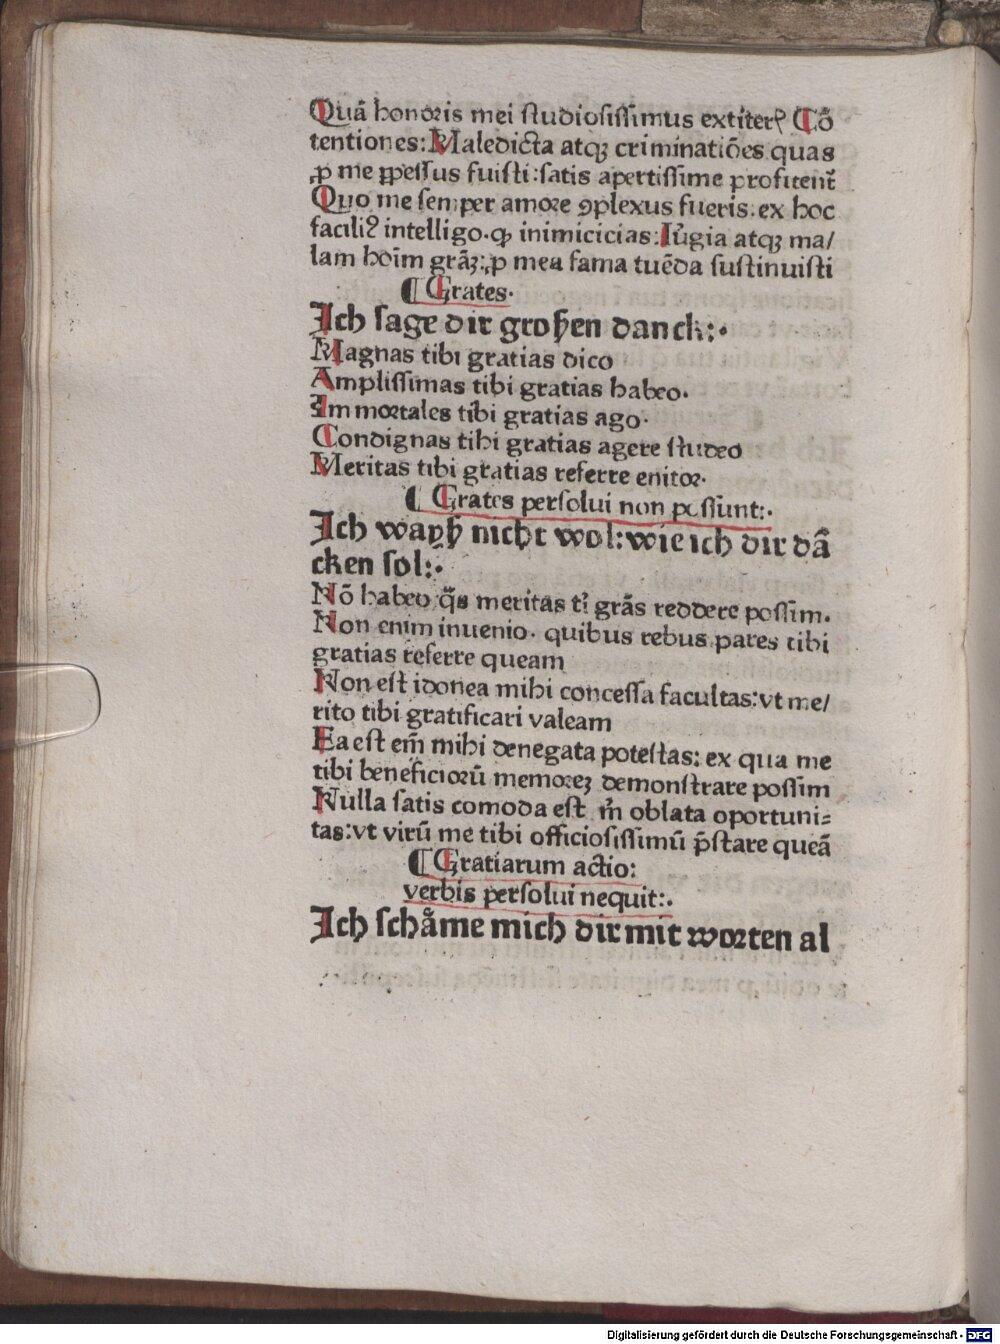 Quã honoris mei studiosissimus extiterꝭ Cõ
tentiones: Maledicta atqꝫ criminatiões quas
ꝓ me ꝑpessus fuisti: satis apertissime profitent᷑
Quo me semper amore ꝯplexus fueris: ex hoc
faciliꝰ intelligo. ꝙ inimicicias: Iur̃gia atqꝫ ma/
lam hoĩm grãꝫ: ꝓ mea fama tuẽda sustinuisti
¶ Grates.
Ich sage dir großen danck:.
Magnas tibi gratias dico
Amplissimas tibi gratias habeo.
Immortales tibi gratias ago.
Condignas tibi gratias agere studeo
Meritas tibi gratias referre enitor.
¶ Grates persolui non possunt:.
Ich wayß nicht wol: wie ich dir dã
cken sol:.
Nõ habeo q̃s meritas ti grãs reddere possim.
Non enim inuenio. quibus rebus pares tibi
gratias referre queam
Non est idonea mihi concessa facultas: vt me/
rito tibi gratificari valeam
Ea est em̃ mihi denegata potestas: ex qua me
tibi beneficiorũ memoreꝫ demonstrare possim
Nulla satis comoda est m̃ oblata oportuni=
tas: vt virũ me tibi officiosissimũ p̃stare queã
¶ Gratiarum actio:
verbis persolui nequit:.
Ich schåme mich dir mit worten al
Digitalisierung gefördert durch die Deutsche Forschungsgemeinschaft - DFG